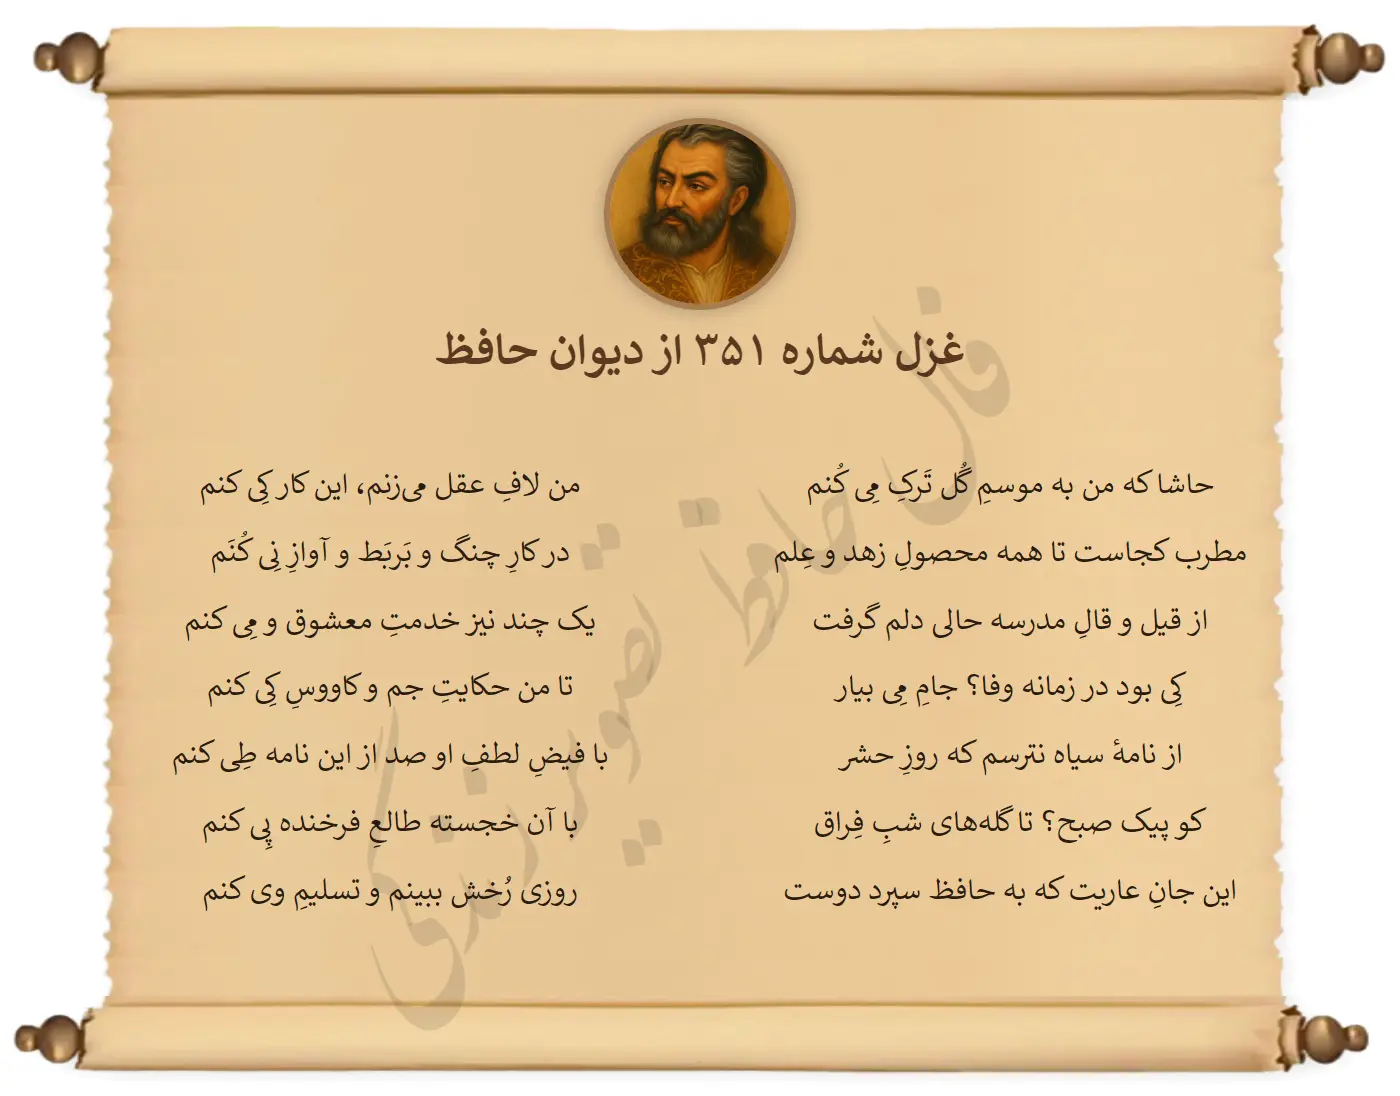 غزل شماره ۳۵۱ از دیوان حافظ
حاشا که من به موسمِ گُل تَرکِ مِی کُنم من لافِ عقل می‌زنم، این کار کِی کنم
مطرب کجاست تا همه محصولِ زهد و عِلم در کارِ چنگ و بَربَط و آوازِ نِی کُنَم
از قیل و قالِ مدرسه حالی دلم گرفت یک چند نیز خدمتِ معشوق و مِی کنم
کِی بود در زمانه وفا؟ جامِ مِی بیار تا من حکایتِ جم و کاووسِ کِی کنم
از نامهٔ سیاه نترسم که روزِ حشر با فیضِ لطفِ او صد از این نامه طِی کنم
کو پیک صبح؟ تا گله‌های شبِ فِراق با آن خجسته طالعِ فرخنده پِی کنم
این جانِ عاریت که به حافظ سپرد دوست روزی رُخش ببینم و تسلیمِ وی کنم
فال حافظ تصویر زندگی